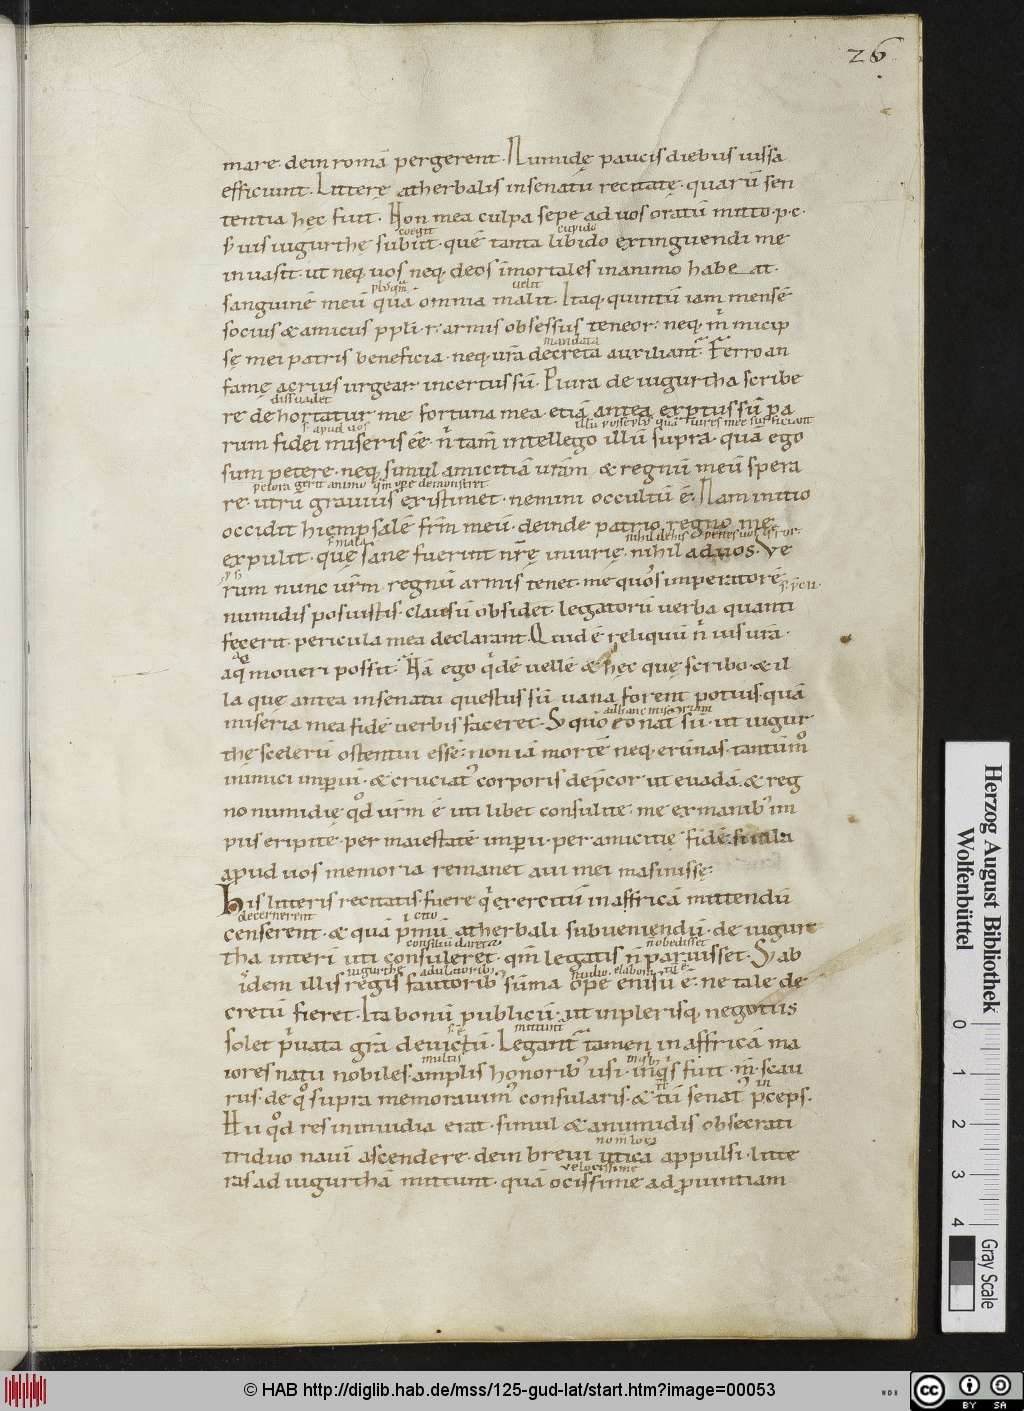 26
mare. dein romā pergerent. Numidę paucis diebus iussa
efficiunt. Litterę atherbalis in senatū recitatę. quarū sen
tentia hęc fuit. Non mea culpa sepe ad uos oratū mitto. p. c.
coegit cupido
s; uis iugurthę subiit. quē tanta libido extinguendi me
inuasit. ut neq; uos neq; deos īmortales in animo habeat.
plꝰquā uelit
sanguinē meū quā omnia malit. Itaq; quintū iam mensē
socius & amicus ppłi. r. armis obsessus teneor. neq; m̄ micip
mandata
sę mei patris beneficia. neq; urā decreta auxiliant͛. Ferro an
famę acrius urgear incertus sū. Plura de iugurtha scribe
dissuadet
re dehortatur me fortuna mea etiā antea exptus sū pa
apud uos illū posse plꝰ quā uires meę sufficiant
rum fidei miseris ēē. n̄ tam̄ intellego illū supra. qua ego
sum petere. neq; simul amicitiā urām & regnū meū spera
peiora gerit animo qm̄ ope demonstret
re. utrū grauius existimet. nemini occultū ē. Nam initio
occidit hiempsalē frm̄ meū. deinde patrio regno me
mala nihil de his
expulit. quę sane fuerint nr̄ę iniurię. nihil ad uos. Ve
rum nunc ur̄m regnū armis tenet. me quē uos imperatorē
numidis posuistis. clausū obsidet. legatorū uerba quanti
fecerit. pericula mea declarant. Quid ē reliquū n̄ uis urā.
aq̄ moueri possit. Nā ego qdē vellē & hęc quę scribo. & il
la quę antea in senatu questus sū uana forent potius. quā
ad hanc miseriam
miseria mea fidē uerbis faceret. S; quō eo natꝰ sū. ut iugur
thę scelerū ostentui essē. non iā mortē neq; erūnas. tantūmº
inimici impiū. & cruciatꝰ corporis dep̄cor ut euadā. & reg
no numidię qd ur̄m ē uti libet consulite. me ex manibꝰ im
piis eripite. per maiestatē imperii. per amicitię fidē. si ulla
apud uos memoria remanet aui mei masinissę.
His litteris recitatis fuere q̄ exercitū in affricā mittendū
decernerent cito
censerent. & quā p̄mū atherbali subueniendū. de iugurt
consiliū daretᷣ n̄ obedisset
tha interī uti consuleret. qm̄ legatis n̄ paruisset. S; ab
iugurthę adulatoribꝰ studio. elaboratū ē
īdem illis regis fautoribꝰ sūma ope enisū ē. ne tale de
cretū fieret. Ita bonū publicū. ut in plerisq; negotiis
mittunt͛
solet p̄uata grā deuictū. Legant͛ tamen in affricā ma
multis in qibꝰ
iores natu nobiles. amplis honoribꝰ usi. in q̄s fuit. m̄. scau
rus. de qº supra memorauimꝰ consularis. & tū senatꝰ p̄ceps.
Hii qd res in inuidia erat. simul & a numidis obsecrati
nom̄ loci
triduo nauī ascendere. dein breui utica appulsi. litte
velocissime
ras ad iugurthā mittunt. quā ocissime ad prouintiam
Herzog August Bibliothek
Wolfenbüttel
0 1 2 3 4
Gray Scale
© HAB http://diglib.hab.de/mss/125-gud-lat/start.htm?image=00053
WDB
cc BY SA